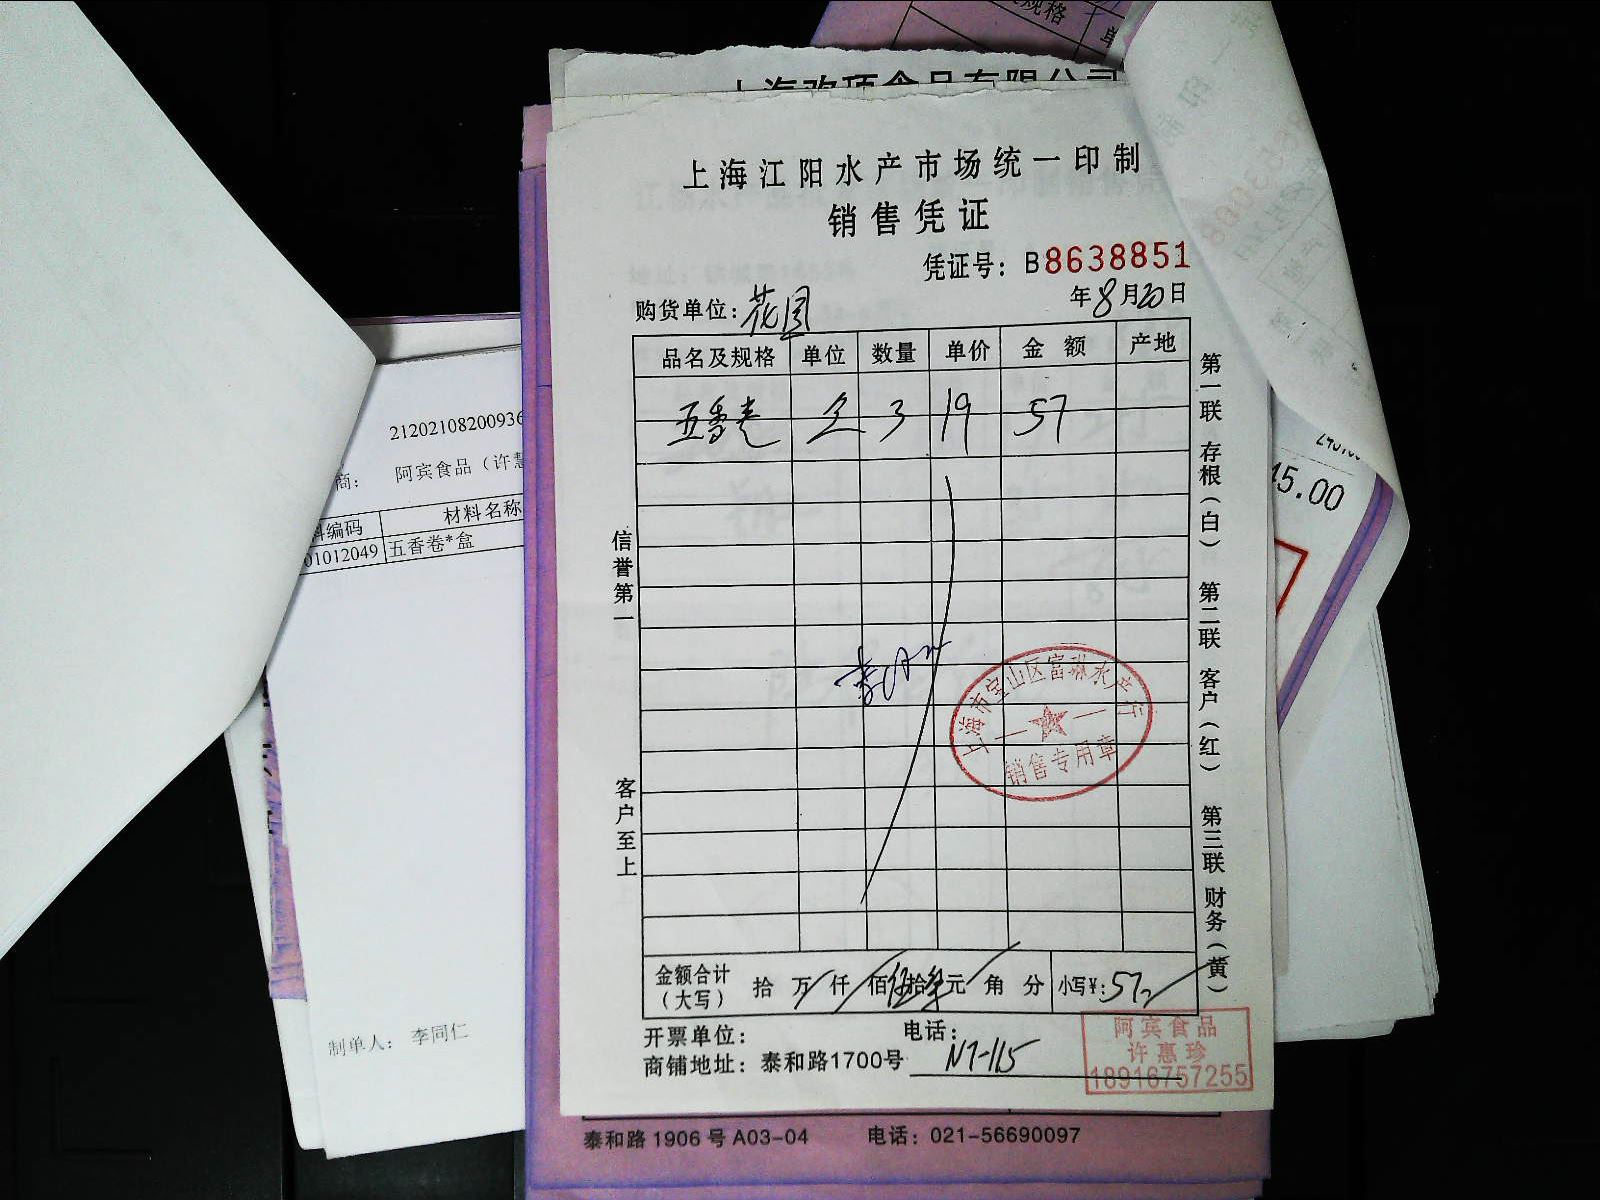 上海江阳水产市场统一印制
销售凭证
凭证号：B8638851
购货单位：花园
年8月20日
品名及规格 单位 数量 单价 金额 产地
五香卷 3 19 57
信誉第一
客户至上
第一联 存根（白） 第二联 客户（红） 第三联 财务（黄）
上海市宝山区富琳水产行
销售专用章
金额合计（大写） 拾 万 仟 佰 伍拾 元 角 分 小写¥：57
开票单位： 电话：
商铺地址：泰和路1700号 N7-115
阿宾食品
许惠珍
18916757255
泰和路1906号A03-04 电话：021-56690097
21202108200936
商： 阿宾食品（许惠
料编码 材料名称
01012049 五香卷*盒
制单人： 李同仁
规格
食品有限公司
45.00